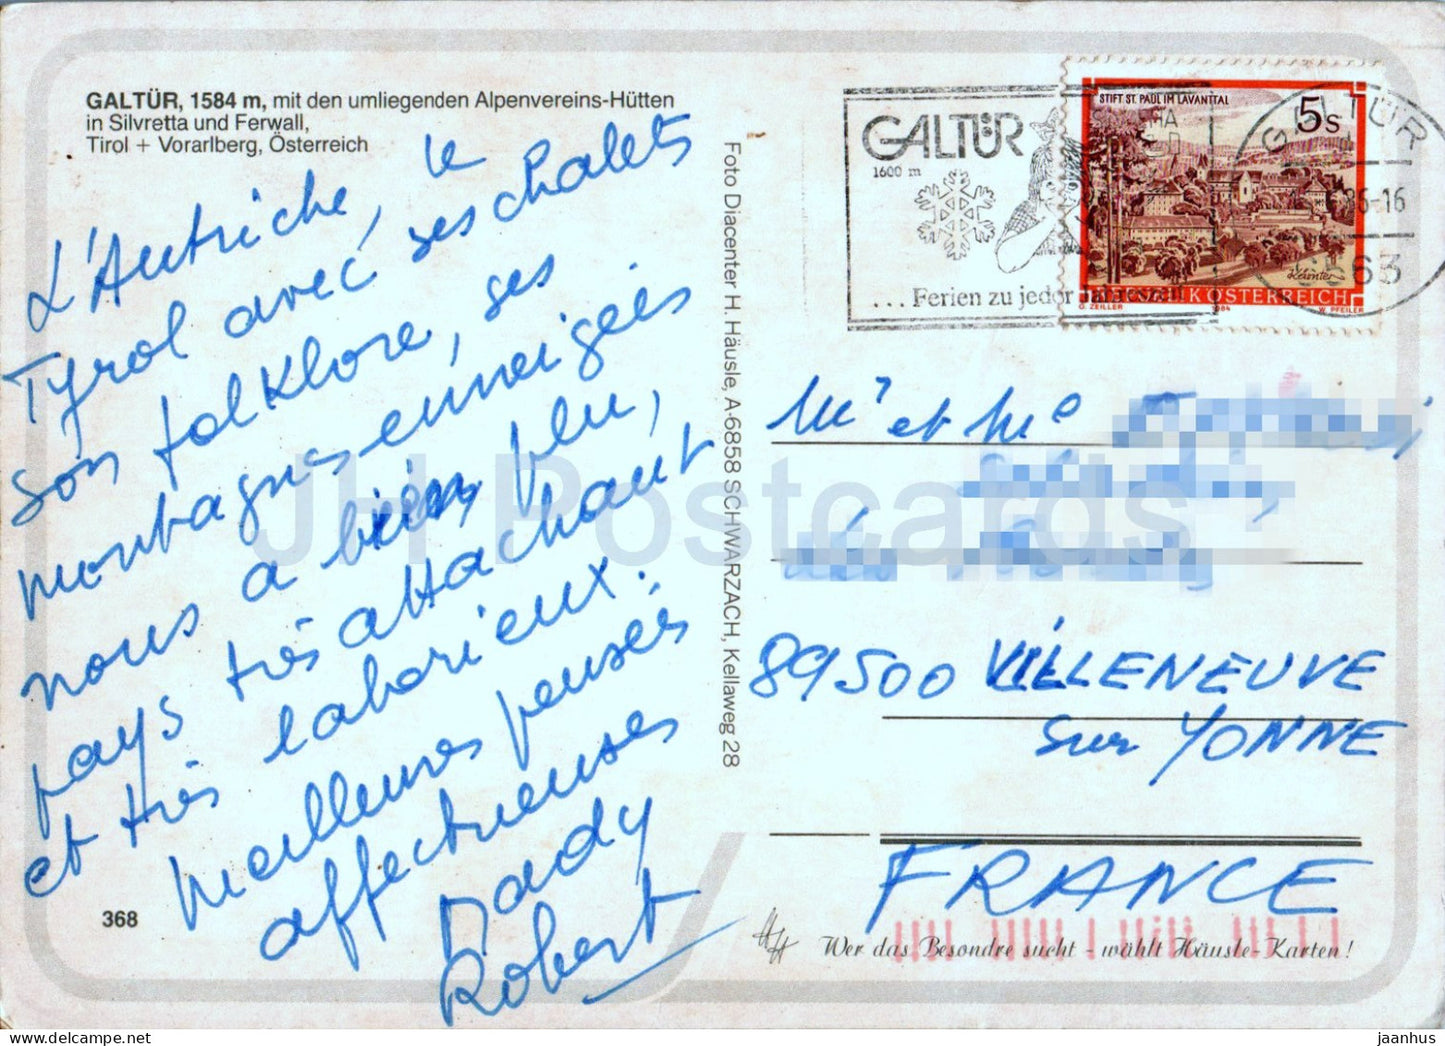 GALTÜR, 1584 m, mit den umliegenden Alpenvereins-Hütten
in Silvretta und Ferwall,
Tirol + Vorarlberg, Österreich
L'Autriche, le
Tyrol avec ses chalets
son folklore, ses
montagnes enneigées
nous a bien plu,
pays très attachant
et très laborieux.
Meilleures pensées
affectueuses
Dardy
Robert
368
Foto Diacenter H. Häusle, A-6858 SCHWARZACH, Kellaweg 28
GALTÜR
1600 m
... Ferien zu jeder Jahreszeit
STIFT ST. PAUL IM LAVANTTAL
5s
Kärnten
REPUBLIK ÖSTERREICH
G. ZEILLER 1984 W. PFEILER
GALTÜR
86-16
6563
Mr et Me
89500 VILLENEUVE
sur YONNE
FRANCE
HH Wer das Besondre sucht - wählt Häusle-Karten!
JH Postcards
jaanhus
delcampe.net